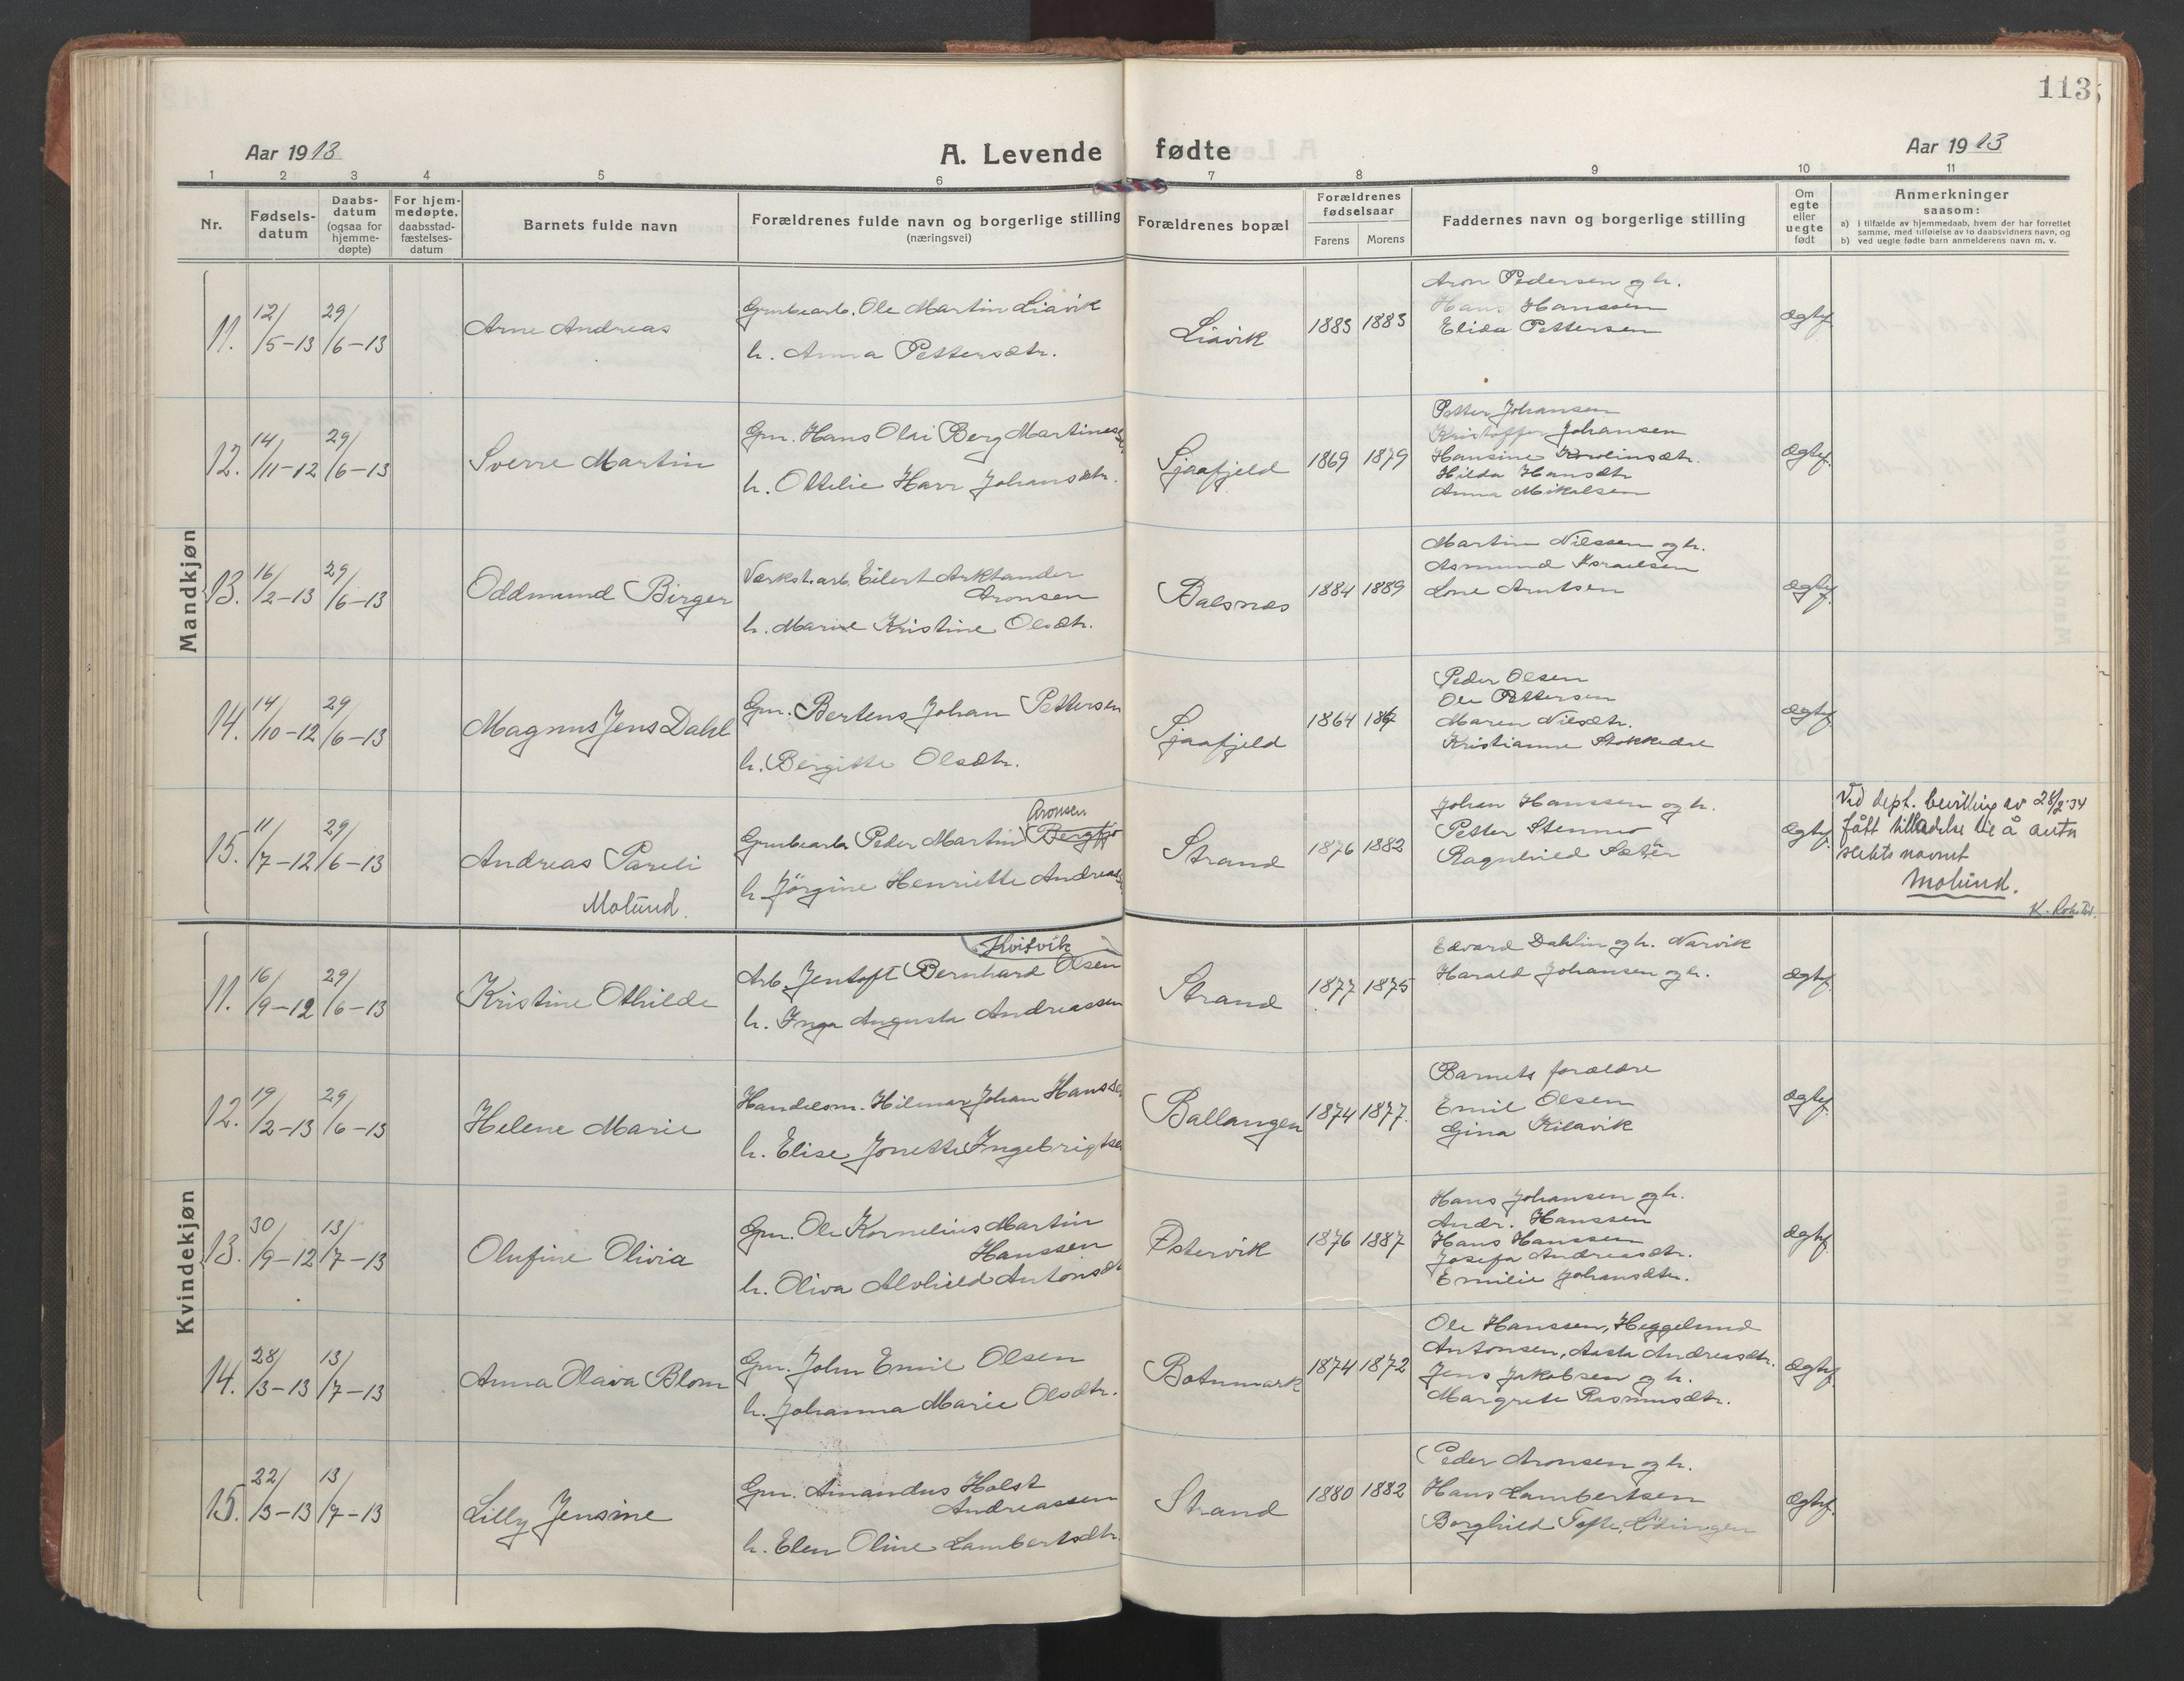 113
Aar 1913
A. Levende fødte
Aar 1913
1 2 3 4 5 6 7 8 9 10 11
Nr.
Fødsels-
datum
Daabs-
datum
(ogsaa for
hjemme-
døpte)
For hjem-
medøpte,
daabsstad-
fæstelses-
datum
Barnets fulde navn
Forældrenes fulde navn og borgerlige stilling
(næringsvei)
Forældrenes bopæl
Forældrenes
fødselsaar
Farens Morens
Faddernes navn og borgerlige stilling
Om
egte
eller
uegte
født
Anmerkninger
saasom:
a) I tilfælde av hjemmedaab, hvem der har forrettet
samme, med tilføielse av to daabsvidners navn, og
b) ved uegte fødte barn anmelderens navn m. v.
Mandkjøn
11. 12/5-13 29/6-13
Arne Andreas
Grubearb. Ole Martin Liavik
h. Anna Pettersdtr.
Liavik
1883 1883
Aron Pedersen og h.
Hans Hanssen
Elida Pettersen
Ægtef.
12. 14/11-12 29/6-13
Sverre Martin
Gm. Hans Olai Berg Martinesen
h. Ottilie Harr Johansdtr.
Sjaafjeld
1869 1879
Petter Johansen
Kristoffer Johansen
Hansine Karolinsdtr.
Hilda Hansdtr
Anna Mikalsen
Ægtef.
13. 16/2-13 29/6-13
Oddmund Birger
Værkst.arb. Eilert Arktander
Aronsen
h. Marie Kristine Olsdtr.
Balsnes
1884 1889
Martin Nilssen og h.
Asmund Israelsen
Lone Arntsen
Ægtef.
14. 14/10-12 29/6-13
Magnus Jens Dahl
Gm. Bertens Johan Pettersen
h. Bergitte Olsdtr.
Sjaafjeld
1864 1867
Peder Olsen
Ole Pettersen
Maren Nilsdtr.
Kristianne
Ægtef.
15. 11/7-12 29/6-13
Andreas Pareli
Molund.
Aronsen
Grubearb. Peder Martin
h. Jörgine Henriette
Strand
1876 1882
Johan Hanssen og h.
Petter Stenmo
Ragnhild Sæter
Ægtef.
Ved dept. bevilling av 28/2-34
fått tilladelse til å anta
slektsnavnet
Molund.
Kvindekjøn
11. 16/9-12 29/6-13
Kristine Othilde
Hvitvik
Arb. Jentoft Bernhard Olsen
h. Inga Augusta Andreassen
Strand
1877 1875
Edvard Dahlin og h. Narvik
Harald Johansen og h.
Ægtef.
12. 19/2-13 29/6-13
Helene Marie
Handelsm. Hilmar Johan Hanssen
h. Elise Jonette Ingebrigtsen
Ballangen
1874 1877.
Barnets forældre
Emil Olsen
Gina Kilavik
Ægtef.
13. 30/9-12 13/7-13
Olufine Olivia
Gm. Ole Kornelius Martin
Hanssen
h. Oliva Alvhild Antonsdt
Østervik
1876 1887
Hans Johansen og h.
Andr. Hanssen
Hans Hanssen
Josefa Andreasdtr.
Emilie Johansdtr.
Ægtef.
14. 28/3-13 13/7-13
Anna Olava Blom
Gm. John Emil Olsen
h. Johanna Marie Olsdtr.
Botnmark
1874 1872
Ole Hanssen, Heggelund
Antonsen, Aasta Andreasdtr.
Jens Jakobsen og h.
Margrete Rasmusdtr.
Ægtef.
15. 22/3-13 13/7-13
Lilly Jensine
Gm. Amandus Holst
Andreassen
h. Elen Oline Lambertsdtr.
Strand
1880 1882
Peder Aronsen og h.
Hans Lambertsen
Borghild Tofte, Lödingen
Ægtef.